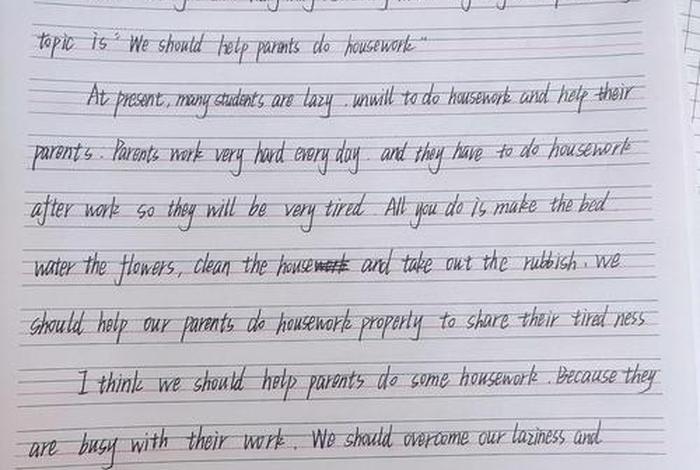 topic is "We should help parents do housework"
At present, many students are lazy. unwill to do housework and help their
parents. Parents work very hard every day. and they have to do housework
after work so they will be very tired. All you do is make the bed
water the flowers, clean the house and take out the rubbish. We
should help our parents do housework properly to share their tired ness
I think we should help parents do some housework. Because they
are busy with their work. We should overcome our laziness and